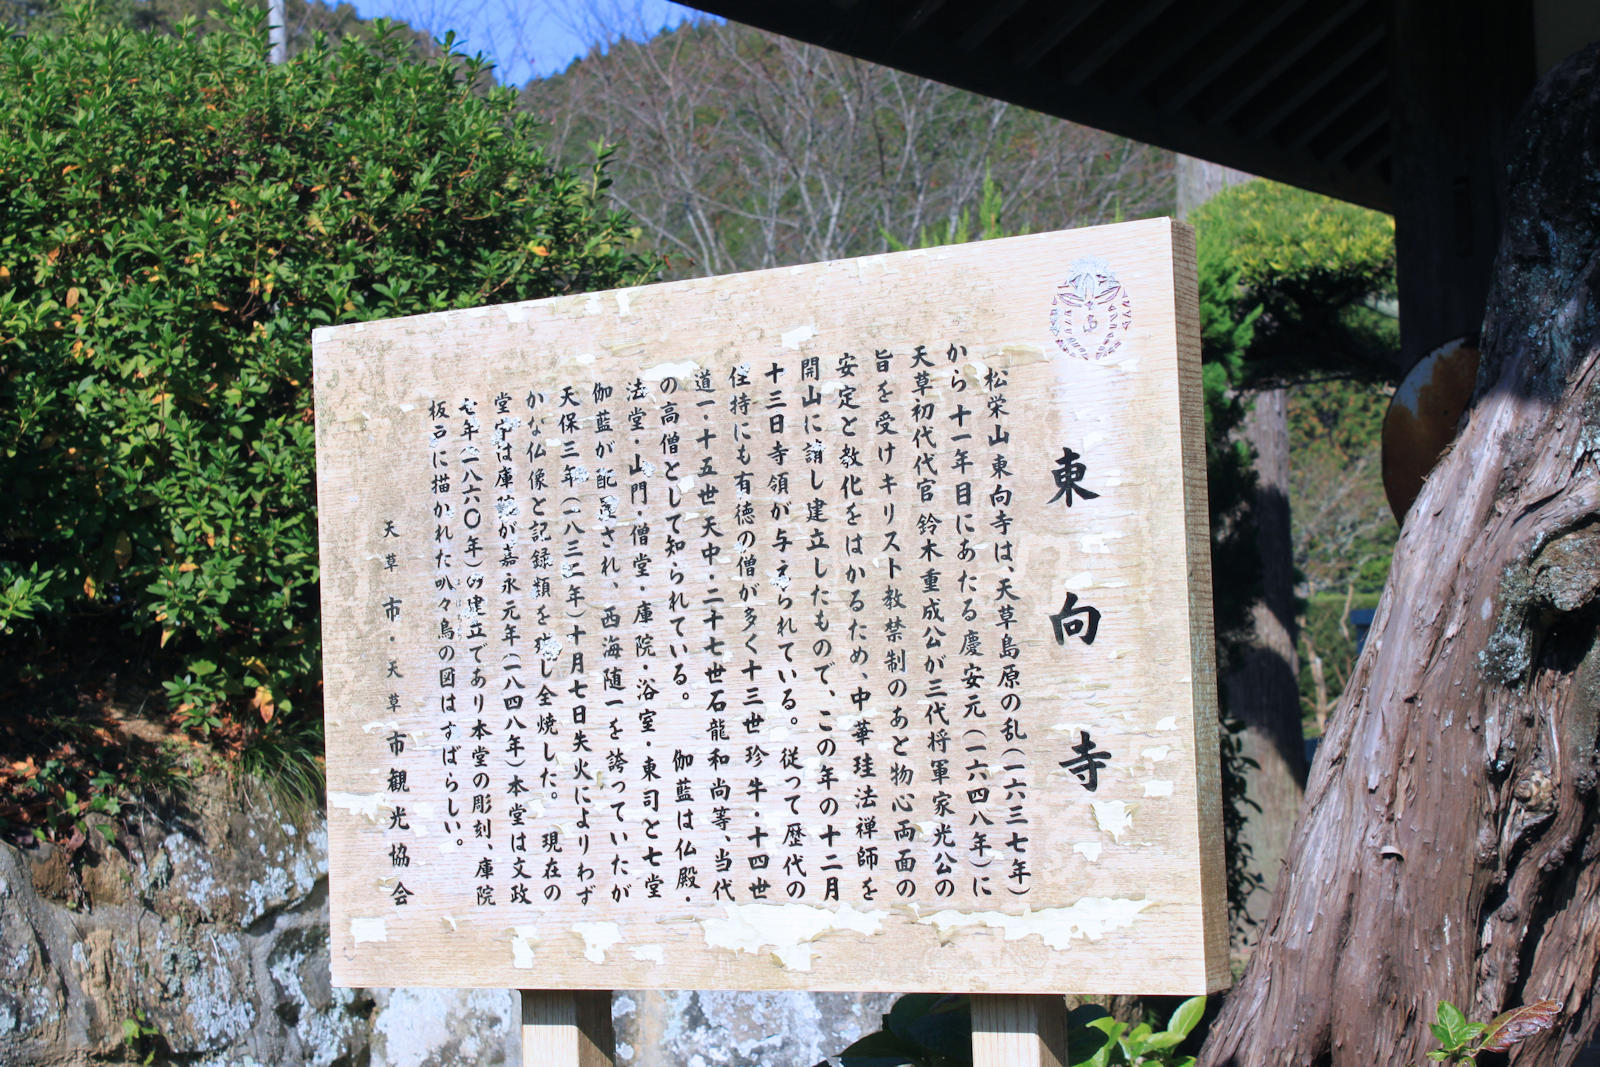 東向寺
松栄山東向寺は、天草島原の乱(一六三七年)
から十一年目にあたる慶安元(一六四八年)に
天草初代代官鈴木重成公が三代将軍家光公の
旨を受けキリスト教禁制のあと物心両面の
安定と教化をはかるため、中華珪法禅師を
開山に請し建立したもので、この年の十二月
十三日寺領が与えられている。従って歴代の
住持にも有徳の僧が多く十三世珍牛・十四世
道一・十五世天中・二十七世石龍和尚等、当代
の高僧として知られている。 伽藍は仏殿・
法堂・山門・僧堂・庫院・浴室・東司と七堂
伽藍が配置され、西海随一を誇っていたが
天保三年(一八三二年)十月七日失火によりわず
かな仏像と記録類を残し全焼した。 現在の
堂宇は庫院が嘉永元年(一八四八年)本堂は文政
年(一八六〇年)の建立であり本堂の彫刻、庫院
板戸に描かれた叭々鳥の図はすばらしい。
天草市・天草市観光協会